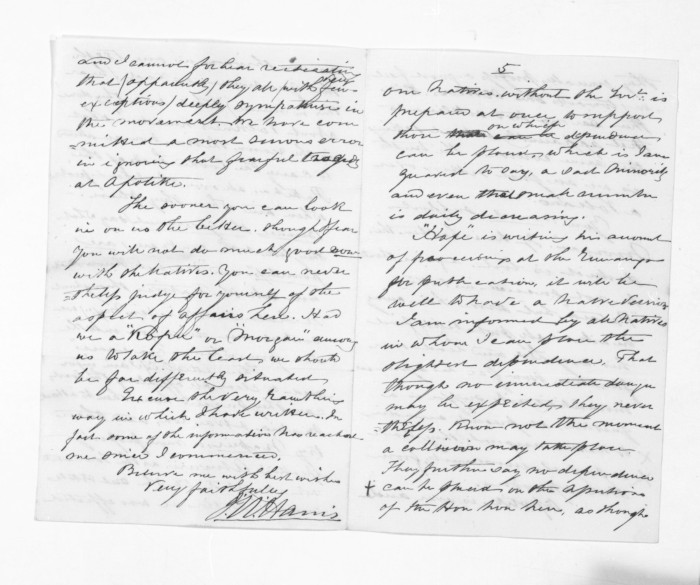 and I cannot forbear reiterating
that (apparently) they all with few
exceptions deeply sympathise in
the movement. We have com
=mitted a most serious error
in ignoring that fearful tragedy
at Apotiki.
The sooner you can look
in on us the better. though I fear
you will not do much good now
with the Natives. You can never
=theless judge for yourself of the
aspect of affairs here. Had
we a "Kopu" or "Morgan" among
us to take the lead we should
be far differently situated
Excuse the very rambling
way in which I have written. In
fact some of the information has reached
me since I commenced.
Believe me with best wishes
Very faithfully
J. W. Harris
5
our Natives without the
prepared at once to support
those on whose dependence
can be placed, which is I am
grieved to say, a sad minority
and even that small number
is daily decreasing.
"Hope" is writing his account
of proceedings at the
for publication, it will be
well to have a Native version
I am informed by all Natives
in whom I can place the
slightest dependence. That
though no immediate danger
may be expected, they never
=theless know not the moment
a collision may take place.
They further say no dependence
+ can be placed on the
of the Hau hau here, as though